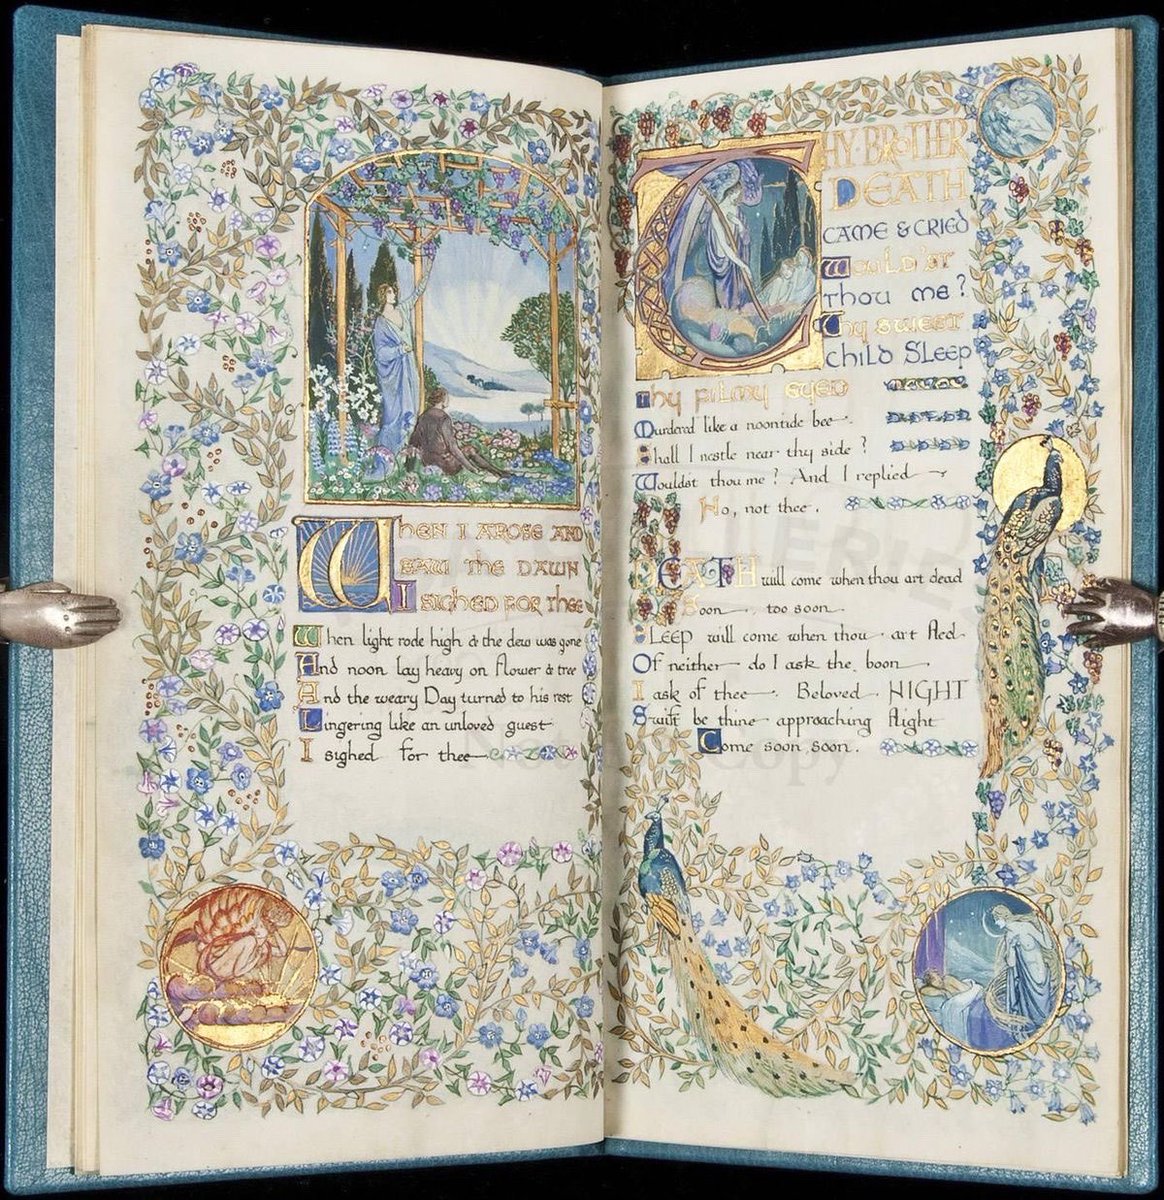 When I arose and
saw the dawn
I sighed for thee
When light rode high & the dew was gone
And noon lay heavy on flower & tree
And the weary Day turned to his rest
Lingering like an unloved guest
I sighed for thee
Thy Brother
Death
came & cried
Would'st
thou me?
Thy sweet
child Sleep
Thy filmy eyed
Murdered like a noontide bee
Shall I nestle near thy side?
Wouldst thou me? And I replied
No, not thee.
Death will come when thou art dead
Soon, too soon
Sleep will come when thou art fled
Of neither do I ask the boon
I ask of thee Beloved NIGHT
Swift be thine approaching flight
Come soon, soon.
GALLERIES
Copy